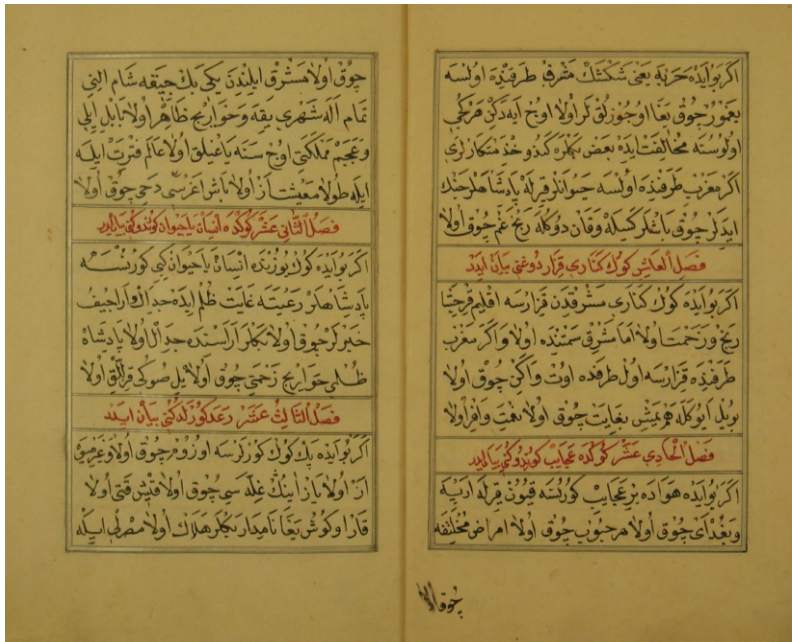 اكر بو آيده حربه يعنى شكشك مشرق طرفنده اولسه
يغمور چوق يغا اوجوزلق كر اولا اوخ آيه دكن هركى
اولوسنه مخالفت ايده بعض بكلره كندو خدمتكارلرى
اكر مغرب طرفنده اولسه حيوانلر قيرله پادشاهلر جنك
ايدلر چوق باشلر كسيله وقان دوكله رنج غم چوق اولا
فصل العاشر كوك كنارى قزاردوغنى بيان ايدر
اكر بو آيده كوك كنارى مشرقدن قزارسه اقليم قرجيا
رنج وزحمت اولا اما مشرق سمتنده اولا واكر مغرب
طرفنده قزارسه اول طرفده اوت واكن چوق اولا
بو يل ايو كله هم يمش بغايت چوق اولا نعمت وافر اولا
فصل الحادى عشر كوكده عجايب كوردوكنى بيان ايدر
اكر بو آيده هواده بر عجايب كورنسه قيون قيرله اربه
وبغداى چوق اولا هر حبوب چوق اولا امراض مختلفه
چوق اولا
چوق اولا مشرق ايلندن يكى بك چيقه شام الينى
تمام آله شهرى يقه وخوارج ظاهر اولا بابل ايلى
وعجم مملكتى اوچ سنه ياغيلق اولا عالم فترت ايله
ايله طولا معيشت از اولا باش اغرسى دخى چوق اولا
فصل الثانى عشر كوكده انسان يا حيوان كوردوكنى بيان ايدر
اكر بو آيده كوك يوزنده انسان يا حيوان كبى كورنسه
پادشاهلر رعيته غايت ظلم ايده جدال واراجيف
خبرلر چوق اولا بكلر اراسنده جدال اولا پادشاه
ظلمى خوارج زحمتى چوق اولا يل صوكى قزللق اولا
فصل الثالث عشر رعد كورلدكنى بيان ايدر
اكر بو آيده پك كوك كورلرسه اوزوم چوق اولا وغيرميوه
از اولا ياز ايننك غله سى چوق اولا قيش قتى اولا
قار اوكوش يغا نامدار بكلر هلاك اولا مصر لى ايله